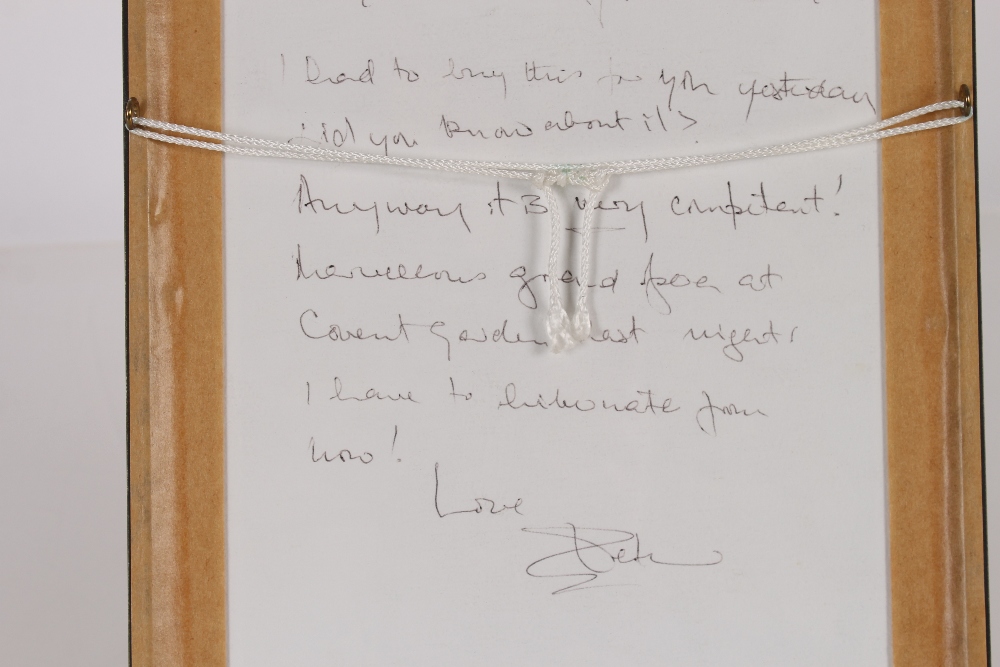 I had to buy this for you yesterday
did you know about it?
Anyway it is very competent!
Marvellous grand at
Covent Garden last night.
I have to hibernate from
now!
Love